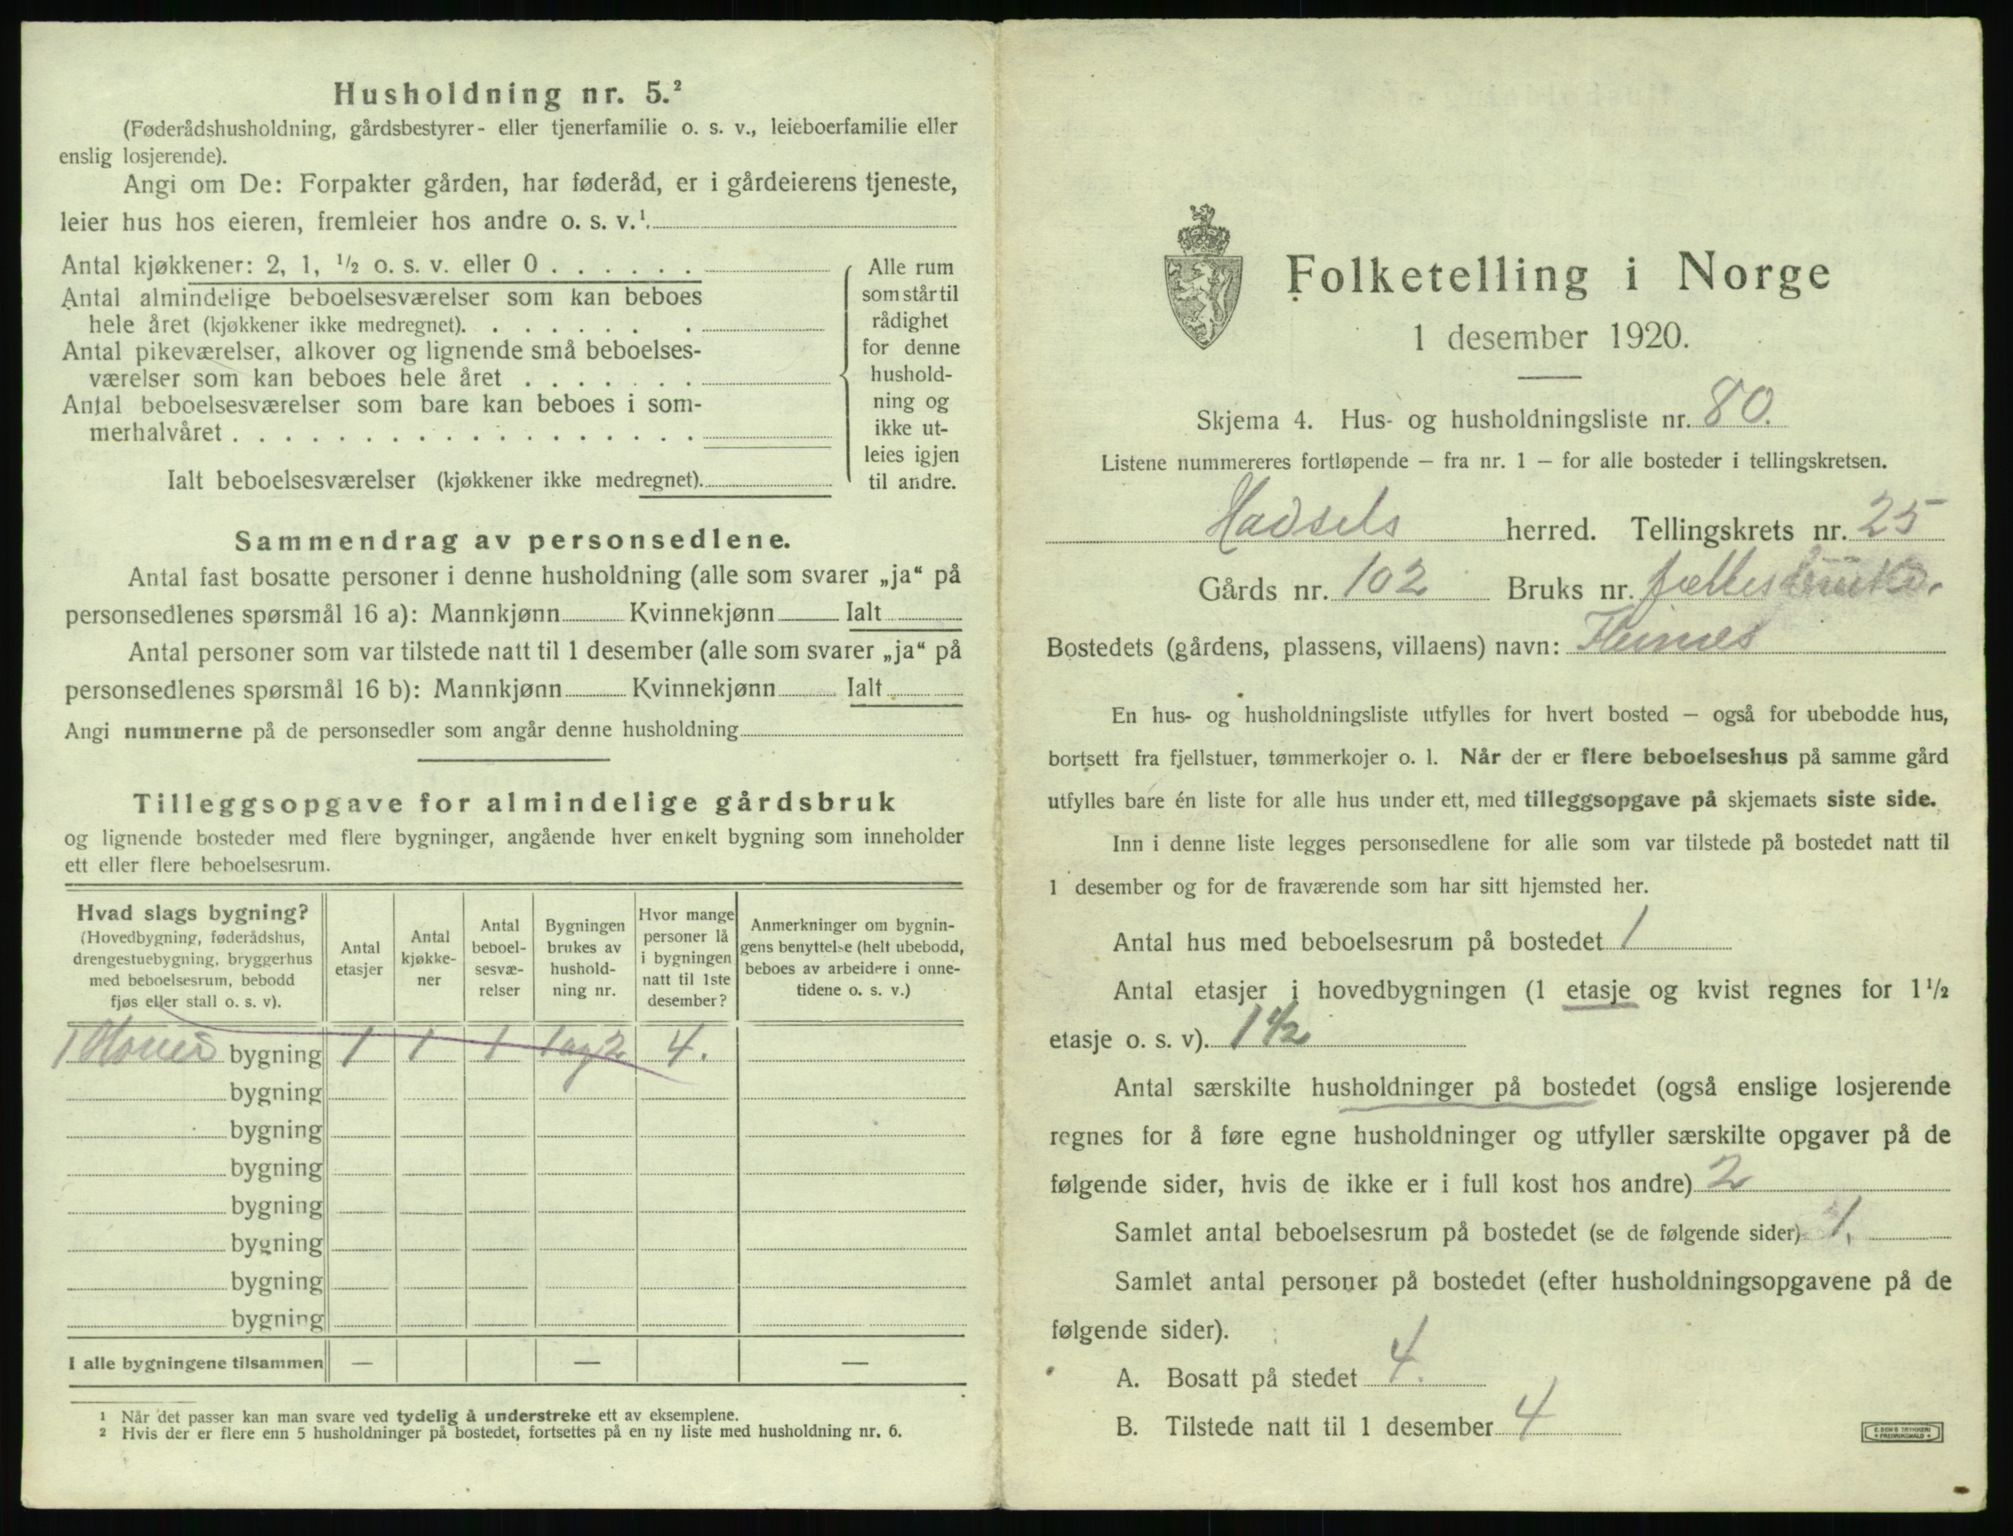 Husholdning nr. 5.²
(Føderådshusholdning, gårdsbestyrer- eller tjenerfamilie o. s. v., leieboerfamilie eller
enslig losjerende).
Angi om De: Forpakter gården, har føderåd, er i gårdeierens tjeneste,
leier hus hos eieren, fremleier hos andre o. s. v.¹
Antal kjøkkener: 2, 1, ½ o. s. v. eller 0 . . . . . .
Antal almindelige beboelsesværelser som kan beboes
hele året (kjøkkener ikke medregnet). . . . . . . .
Antal pikeværelser, alkover og lignende små beboelses-
værelser som kan beboes hele året . . . . . . .
Antal beboelsesværelser som bare kan beboes i som-
merhalvåret . . . . . . . . . . . . . . . . . .
Ialt beboelsesværelser (kjøkkener ikke medregnet).
Alle rum
som står til
rådighet
for denne
hushold-
ning og
ikke ut-
leies igjen
til andre.
Sammendrag av personsedlene.
Antal fast bosatte personer i denne husholdning (alle som svarer „ja“ på
personsedlenes spørsmål 16 a): Mannkjønn Kvinnekjønn Ialt
Antal personer som var tilstede natt til 1 desember (alle som svarer „ja“ på
personsedlenes spørsmål 16 b): Mannkjønn Kvinnekjønn Ialt
Angi nummerne på de personsedler som angår denne husholdning
Tilleggsopgave for almindelige gårdsbruk
og lignende bosteder med flere bygninger, angående hver enkelt bygning som inneholder
ett eller flere beboelsesrum.
Hvad slags bygning?
(Hovedbygning, føderådshus,
drengestuebygning, bryggerhus
med beboelsesrum, bebodd
fjøs eller stall o. s. v).
Antal
etasjer
Antal
kjøkke-
ner
Antal
beboel-
sesvæ-
relser
Bygningen
brukes av
hushold-
ning nr.
Hvor mange
personer lå
i bygningen
natt til 1ste
desember?
Anmerkninger om bygnin-
gens benyttelse (helt ubebodd,
beboes av arbeidere i onne-
tidene o. s. v.)
1 bygning 1 1 1 1 og 2 4.
bygning
bygning
bygning
bygning
bygning
bygning
bygning
I alle bygningene tilsammen — — —
1 Når det passer kan man svare ved tydelig å understreke ett av eksemplene.
2 Hvis der er flere enn 5 husholdninger på bostedet, fortsettes på en ny liste med husholdning nr. 6.
Folketelling i Norge
1 desember 1920.
Skjema 4. Hus- og husholdningsliste nr. 80.
Listene nummereres fortløpende – fra nr. 1 – for alle bosteder i tellingskretsen.
Hadsels herred. Tellingskrets nr. 25
Gårds nr. 102 Bruks nr. fælles
Bostedets (gårdens, plassens, villaens) navn:
En hus- og husholdningsliste utfylles for hvert bosted – også for ubebodde hus,
bortsett fra fjellstuer, tømmerkojer o. l. Når der er flere beboelseshus på samme gård
utfylles bare én liste for alle hus under ett, med tilleggsopgave på skjemaets siste side.
Inn i denne liste legges personsedlene for alle som var tilstede på bostedet natt til
1 desember og for de fraværende som har sitt hjemsted her.
Antal hus med beboelsesrum på bostedet 1
Antal etasjer i hovedbygningen (1 etasje og kvist regnes for 1½
etasje o. s. v). 1 ½
Antal særskilte husholdninger på bostedet (også enslige losjerende
regnes for å føre egne husholdninger og utfyller særskilte opgaver på de
følgende sider, hvis de ikke er i full kost hos andre) 2
Samlet antal beboelsesrum på bostedet (se de følgende sider) 1.
Samlet antal personer på bostedet (efter husholdningsopgavene på de
følgende sider).
A. Bosatt på stedet 4.
B. Tilstede natt til 1 desember 4